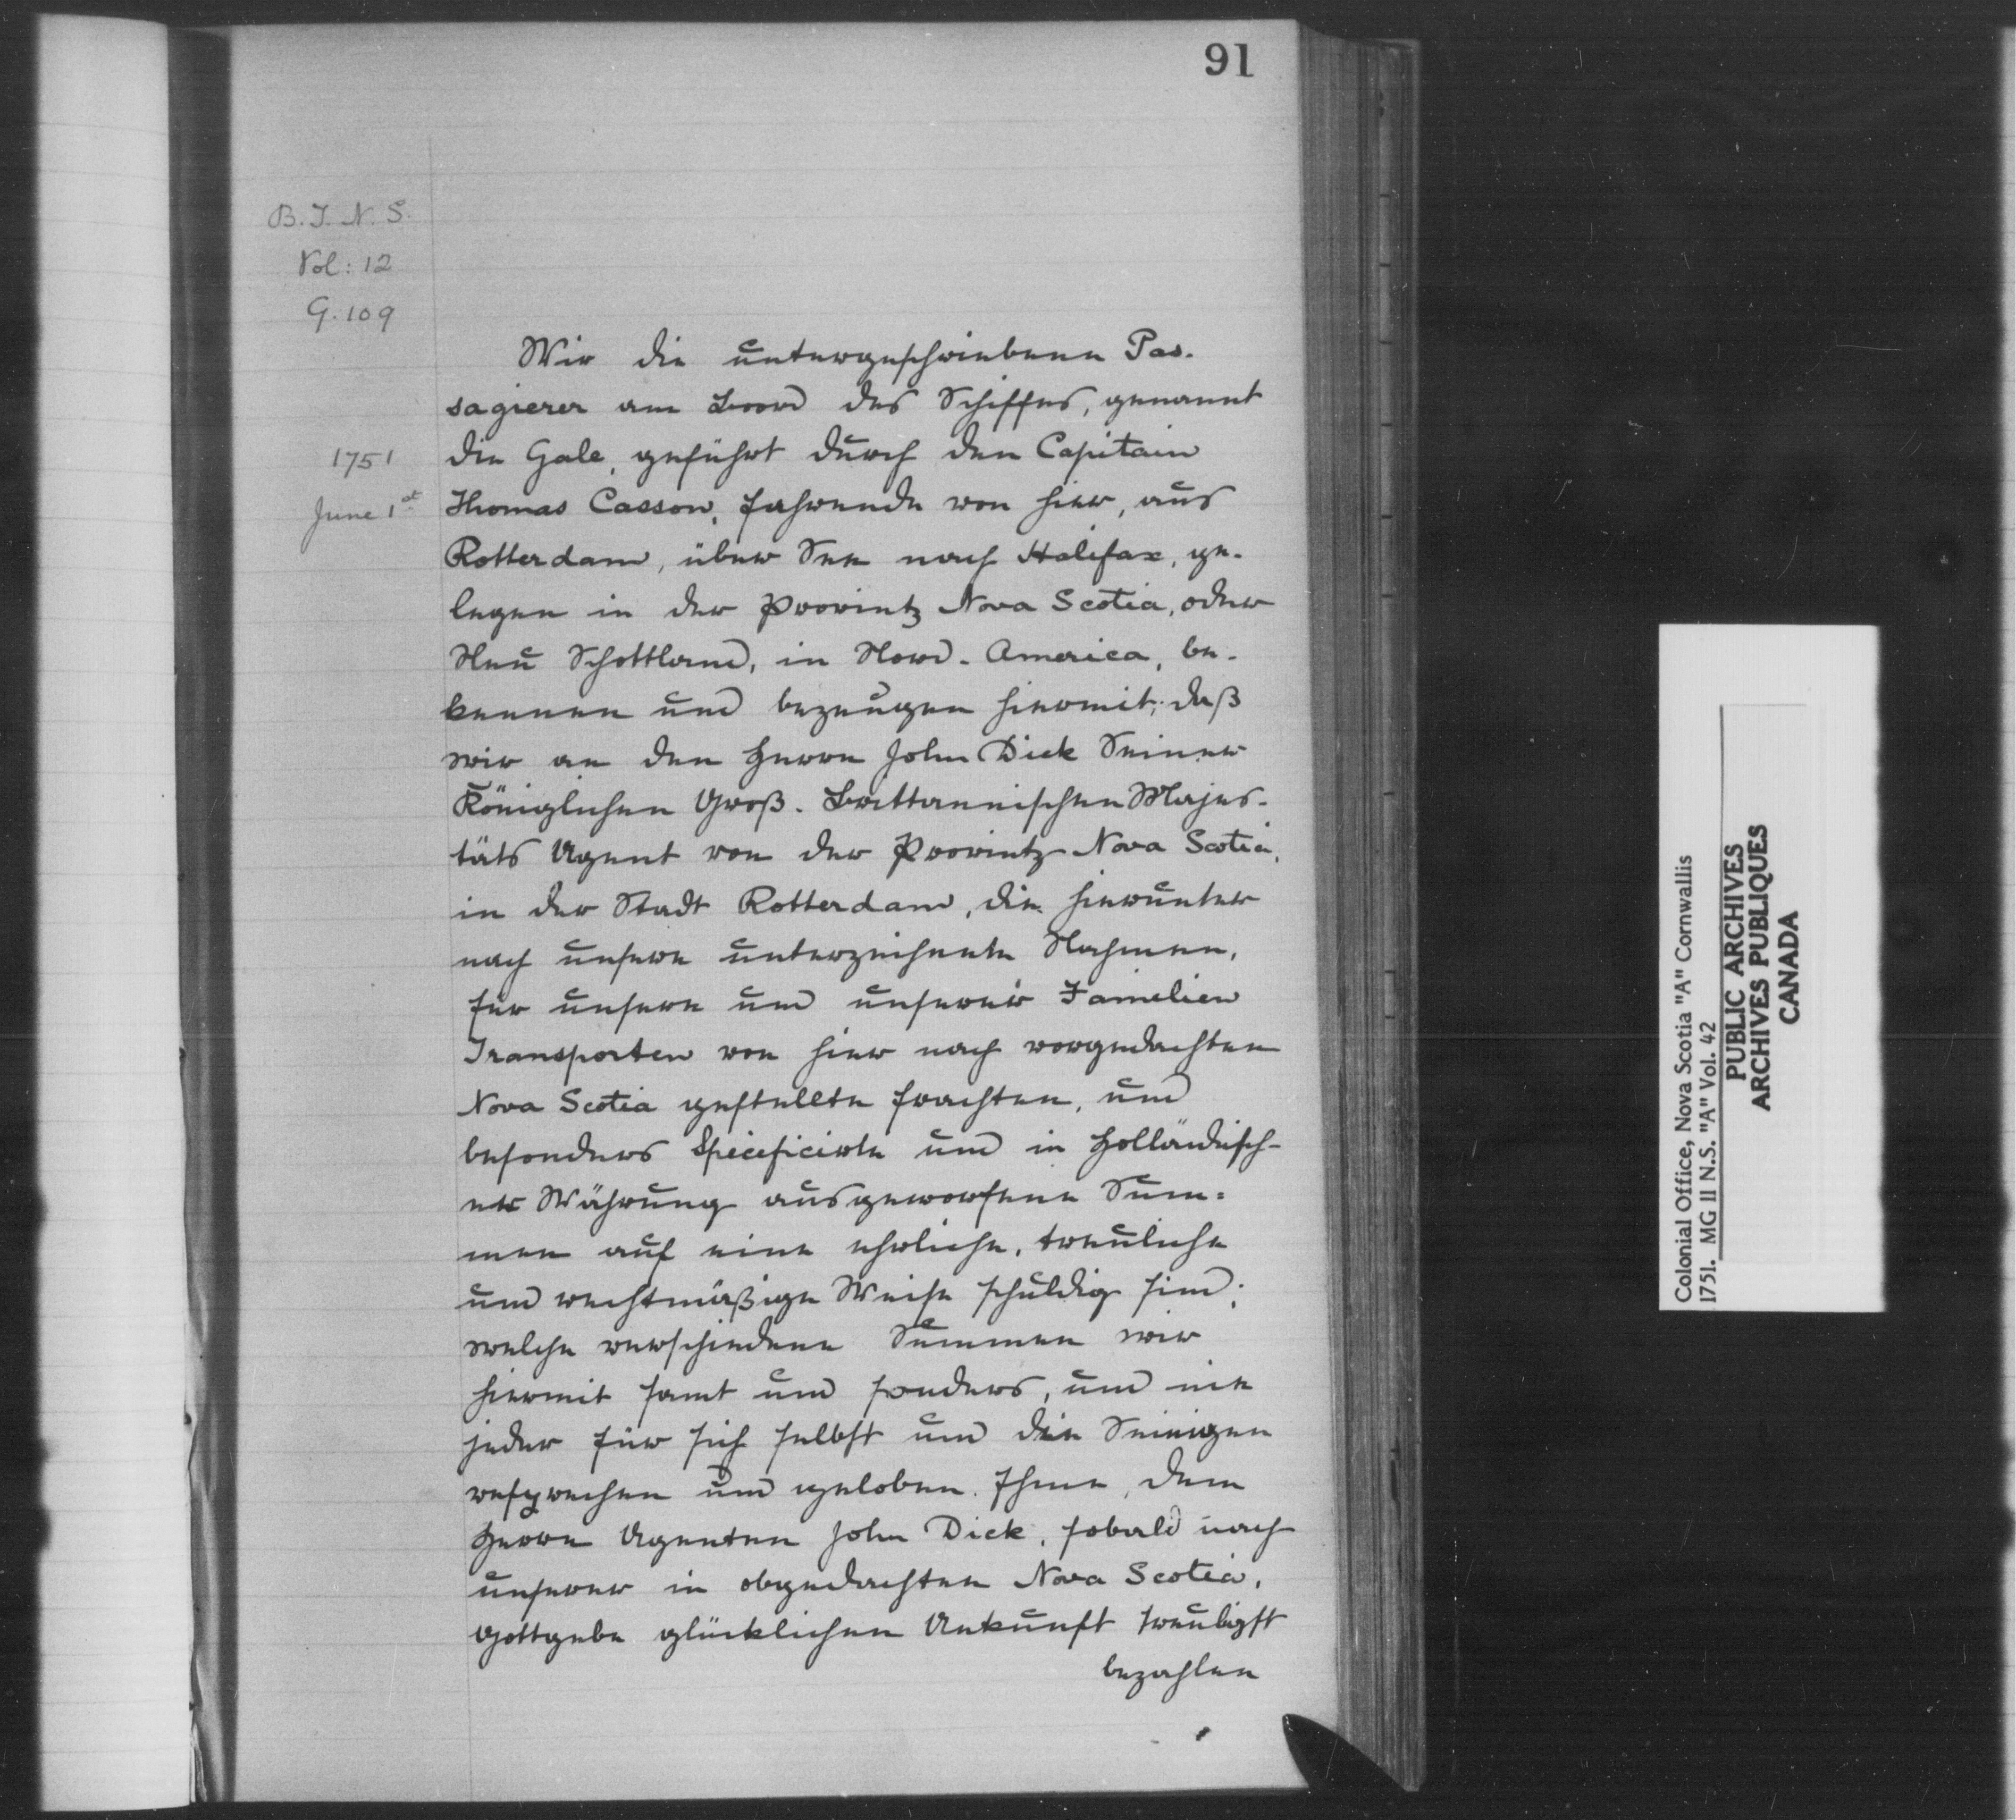 91
B.T.N.S.
Vol: 12
G. 109
Wir die untergeschriebene Pas-
sagierer am Boord des Schiffes, genannt
1751
die Gale, geführt durch den Capitain
June 1st
Thomas Casson, fahrende von hier, aus
Rotterdam, über See nach Halifax, ge-
legen in der Provintz Nova Scotia, oder
Neu Schottland, in Nord-America, be-
kennen und bezeugen hiermit; daß
wir an den Herrn John Dick Seiner
Königlichen Groß-Brittannischen Majes-
täts Agent von der Provintz Nova Scotia,
in der Stadt Rotterdam, die hierunter
nach unsere unterzeichnete Nahmen,
für unsere und unserer Familien
Transporten von hier nach vorgedachten
Nova Scotia gestellte frachten, und
besonders Specificirte und in Holländisch-
er Währung ausgeworfene Sum=
men auf eine ehrliche, treuliche
und rechtmäßige Weise schuldig sind;
welche verschiedene Summen wir
hiermit samt und sonders, und ein
jeder für sich selbst und die Seinigen
versprechen und geloben. Ihme, dem
Herrn Agenten John Dick, sobald nach
unserer in obgedachten Nova Scotia,
Gottgebe glücklichen Ankunft treuligst
bezahlen
Colonial Office, Nova Scotia "A" Cornwallis
1751. MG 11 N.S. "A" Vol. 42
PUBLIC ARCHIVES
ARCHIVES PUBLIQUES
CANADA